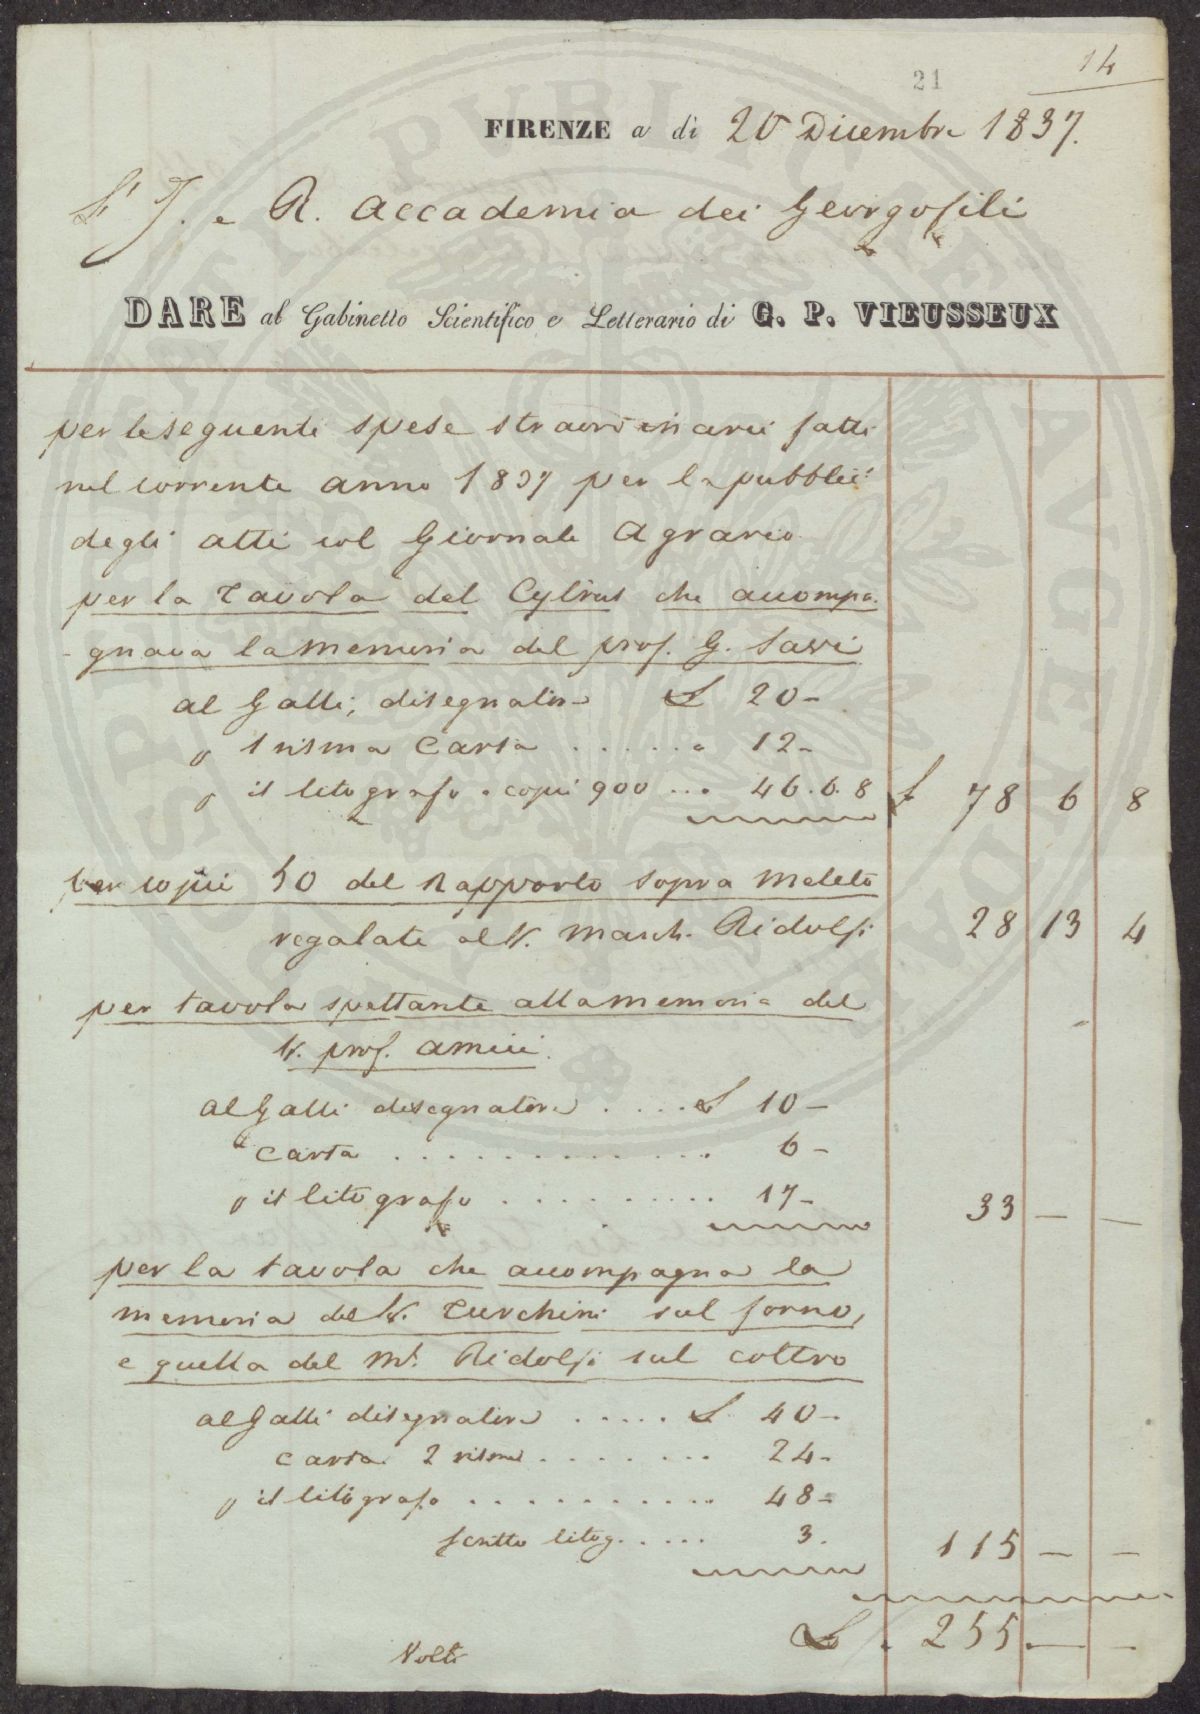 14
21
FIRENZE a dì 20 Dicembre 1837.
L' I. e R. Accademia dei Georgofili
DARE al Gabinetto Scientifico e Letterario di G. P. VIEUSSEUX
per le seguenti spese straordinarie fatte
nel corrente anno 1837 per la pubblic.
degli atti col Giornale Agrario
per la tavola del Cytisus che accompa-
- gnava la memoria del prof. G. Savi
al Galli, disegnatore £ 20 -
" 1 risma carta . . . . . . 12 -
" il litografo e copie 900 . . . 46. 6. 8 £ 78 6 8
per copie 50 del Rapporto sopra Meleto
regalate al S. March. Ridolfi 28 13 4
per tavola spettante alla memoria del
S. prof. Amici.
al Galli disegnatore . . . . £ 10 -
" carta . . . . . . . . . . . . . 6 -
" il litografo . . . . . . . . . . 17 - 33 — —
per la tavola che accompagna la
memoria del S. Turchini sul forno,
e quella del M. Ridolfi sul coltro
al Galli disegnatore . . . . . £ 40 -
carta 2 risme . . . . . . . . 24 -
" il litografo . . . . . . . . . . . 48 -
scritto litog. . . . . 3. 115 — —
£ . 255 — —
Volti